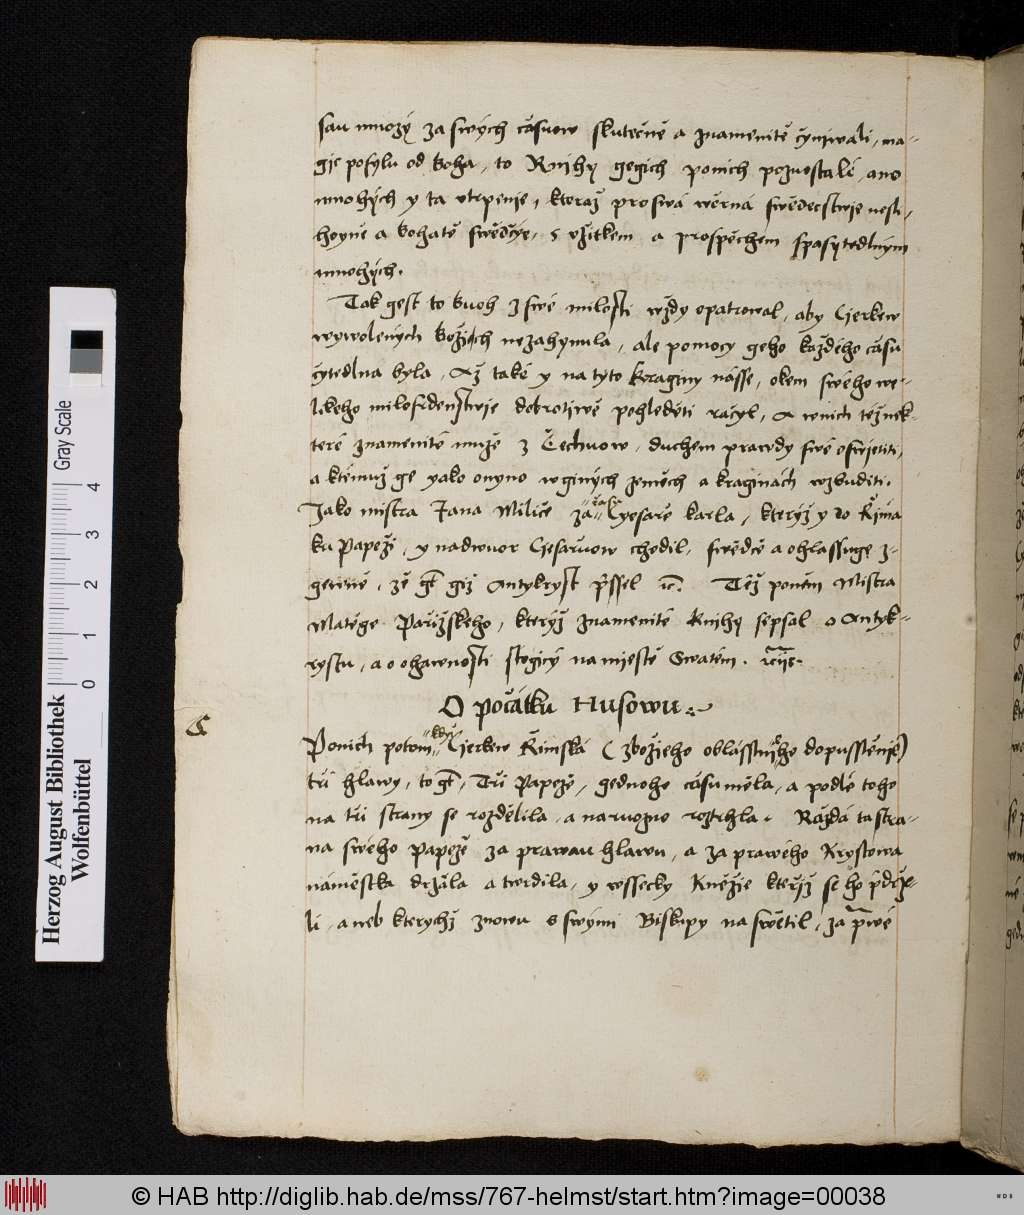 sau mnozý za swých cásuow skutečně a znamenitě čynívali, ma-
gje posylu od boha, to Knihy gegich ponich pozuostalé, ano
mnohých y ta vtrpenje, kteráž pro swá wěrná swědectwje nesli,
hoyně a bohatě swědčýe, s vžitkem a prospěchem spasytedlným
mnohých.
Tak gest to buoh z swé milosti wždy opatrowal, aby Cjerkew
wywolených božích nezahynula, ale pomocy geho každého cásu
čytedlna byla, Až také y na tyto kraginy násse, okem swého we-
likeho milosrdenstwje dobrotiwě pohleděti ráčyl, A wnich též nek-
teré znamenité muže z Čechuow, duchem prawdy swé oswjetiti,
a ktémuž ge yako onyno wginých zemech a kraginách wzbuditi.
Jako mistra Jana Miliče za času Cyesaře karla, kterýž y do Říma
ku Papeži, y nadwuor Cjesařuow chodil, swědcě a ohlassuge z-
gewně, že gt giž Antykryst přissel ꝛc. Též potom Mistra
Matěge Pařížskeho, kterýž znamenité Knihy sepsal o Antyk-
rystu, a o ohawnosti stogicý na mjestě Swatém.
O počátku Husowu
Ponich potom když Cjerkew Římská (zbožieho obláśstnjho dopusstěnjé)
tři hlawy, to gt, Tři Papeže, gednoho cásu měla, a podlé toho
na tři strany se rozdělila, a naruozno roztrhla. Každá ta stra-
na swého papeže za prawau hlawu, a za prawého Krystowa
náměstka držála a twrdila, y wssecky Kněžie kteřjž se ho přdrže-
li, aneb kterychž znowu s swými Biskupy na swětil, za prwé
Herzog August Bibliothek
Wolfenbüttel
Gray Scale
0 1 2 3 4
© HAB http://diglib.hab.de/mss/767-helmst/start.htm?image=00038
WDB